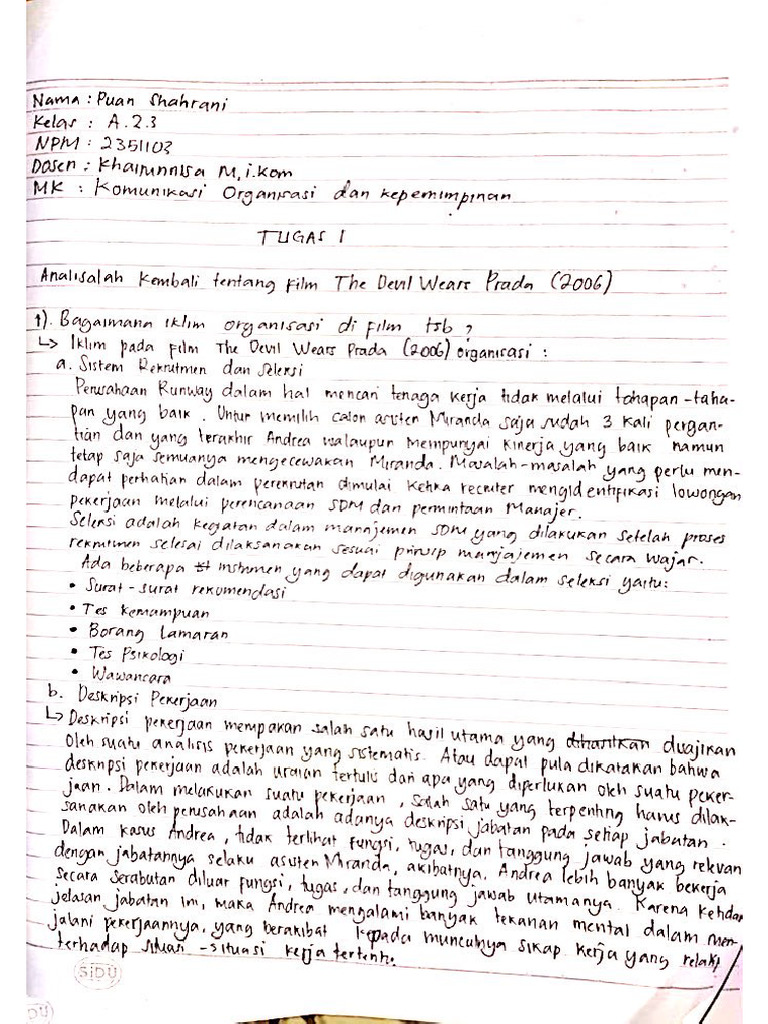 Nama : Puan Shahrani
Kelas : A.2.3
NPM : 2351103
Dosen : Khairunnisa M,i.kom
MK : Komunikasi Organisasi dan kepemimpinan
TUGAS 1
Analisalah kembali tentang film The Devil Wears Prada (2006)
1). Bagaimana iklim organisasi di film tsb ?
↳ Iklim pada film The Devil Wears Prada (2006) organisasi :
a. Sistem Rekrutmen dan Seleksi
Perusahaan Runway dalam hal mencari tenaga kerja tidak melalui tahapan-taha-
pan yang baik. Untuk memilih calon asisten Miranda saja sudah 3 kali pergan-
tian dan yang terakhir Andrea walaupun mempunyai kinerja yang baik namun
tetap saja semuanya mengecewakan Miranda. Masalah-masalah yang perlu men-
dapat perhatian dalam perekrutan dimulai ketika recruter mengidentifikasi lowongan
pekerjaan melalui perencanaan SDM dan permintaan Manajer.
Seleksi adalah kegiatan dalam mannjemen SDM yang dilakukan setelah proses
rekrutmen selesai dilaksanakan sesuai prinsip manjajemen secara wajar.
Ada beberapa instrumen yang dapat digunakan dalam seleksi yaitu:
• Surat-surat rekomendasi
• Tes Kemampuan
• Borang Lamaran
• Tes Psikologi
• Wawancara
b. Deskripsi Pekerjaan
↳ Deskripsi pekerjaan merupakan salah satu hasil utama yang dihasilkan disajikan
oleh suatu analisis pekerjaan yang sistematis. Atau dapat pula dikatakan bahwa
deskripsi pekerjaan adalah uraian tertulis dari apa yang diperlukan oleh suatu peker-
jaan. Dalam melakukan suatu pekerjaan, salah satu yang terpenting harus dilak-
sanakan oleh perusahaan adalah adanya deskripsi jabatan pada setiap jabatan.
Dalam kasus Andrea, tidak terlihat fungsi, tugas, dan tanggung jawab yang relevan
dengan jabatannya selaku asisten Miranda, akibatnya, Andrea lebih banyak bekerja
secara serabutan diluar fungsi, tugas, dan tanggung jawab utamanya. Karena ketidak
jelasan jabatan ini, maka Andrea mengalami banyak tekanan mental dalam men-
jalani pekerjaannya, yang berakibat kepada munculnya sikap kerja yang
terhadap situasi-situasi kerja tertentu.
SiDU
DU